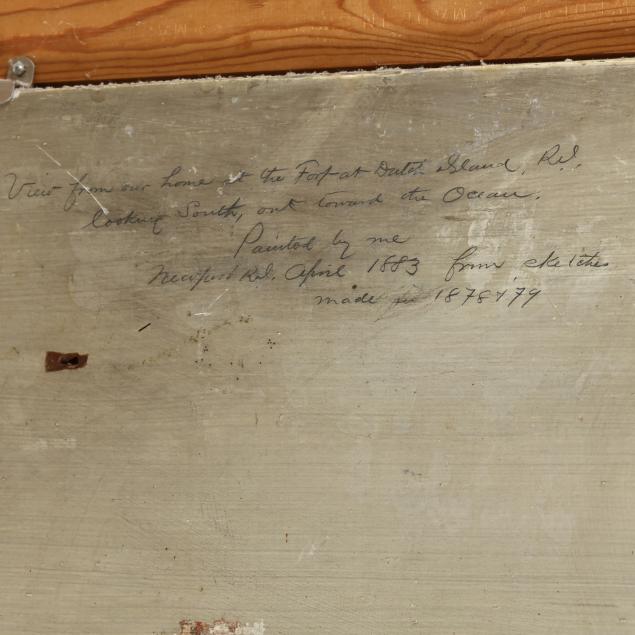 View from our home at the Fort at Dutch Island, R.I.
looking South, out toward the Ocean.
Painted by me
Newport R.I. April 1883 from sketches
made in 1878 & 79